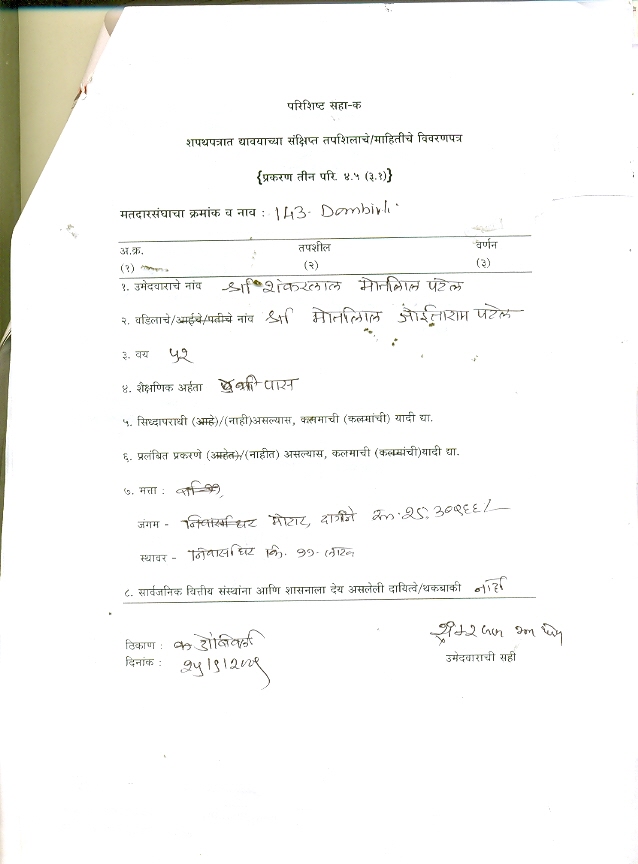 परिशिष्ट सहा-क
शपथपत्रात द्यावयाच्या संक्षिप्त तपशिलाचे/माहितीचे विवरणपत्र
{प्रकरण तीन परि. ४.५ (३.१)}
मतदारसंघाचा क्रमांक व नाव : 143- Dombivli
अ.क्र. तपशील वर्णन
(१) (२) (३)
१. उमेदवाराचे नांव श्री शंकरलाल मोतीलाल पटेल
२. वडिलाचे/आईचे/पतीचे नांव श्री मोतीलाल जोईताराम पटेल
३. वय ५२
४. शैक्षणिक अर्हता पास
५. सिध्दापराधी (आहे)/(नाही)असल्यास, कलमाची (कलमांची) यादी द्या.
६. प्रलंबित प्रकरणे (आहेत)/(नाहीत) असल्यास, कलमाची (कलमांची)यादी द्या.
७. मत्ता :
जंगम - निवासी घर मोटार, दागीने रू. २५.३०९६६/-
स्थावर - निवासी घर कि. ११ लाख
८. सार्वजनिक वित्तीय संस्थांना आणि शासनाला देय असलेली दायित्वे/थकबाकी नाही
ठिकाण : डोंबिवली
दिनांक : २५/९/२००९
उमेदवाराची सही